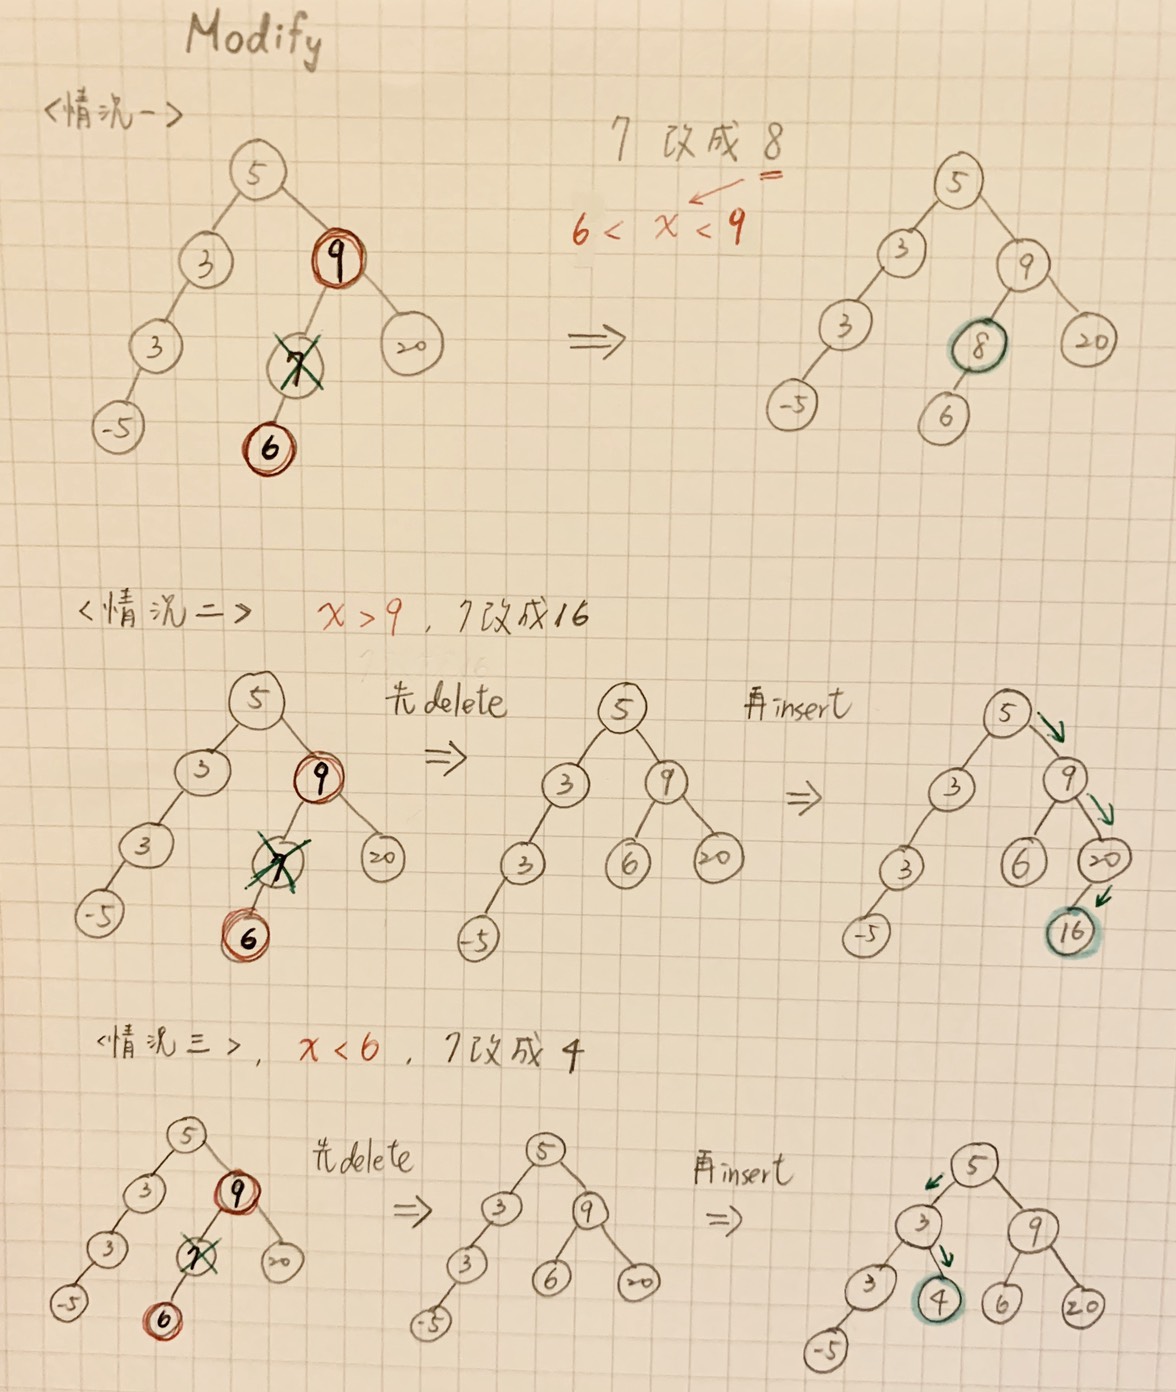 Modify
<情況一>
7 改成 8
6 < x < 9
5
3 9
3 7 20
-5 6
⇒
5
3 9
3 8 20
-5 6
<情況二> x > 9 , 7改成16
5
3 9
3 7 20
-5 6
先 delete
⇒
5
3 9
3 6 20
-5
再 insert
⇒
5
3 9
3 6 20
-5 16
<情況三>, x < 6 , 7改成 4
5
3 9
3 7 20
-5 6
先 delete
⇒
5
3 9
3 6 20
-5
再 insert
⇒
5
3 9
3 4 6 20
-5